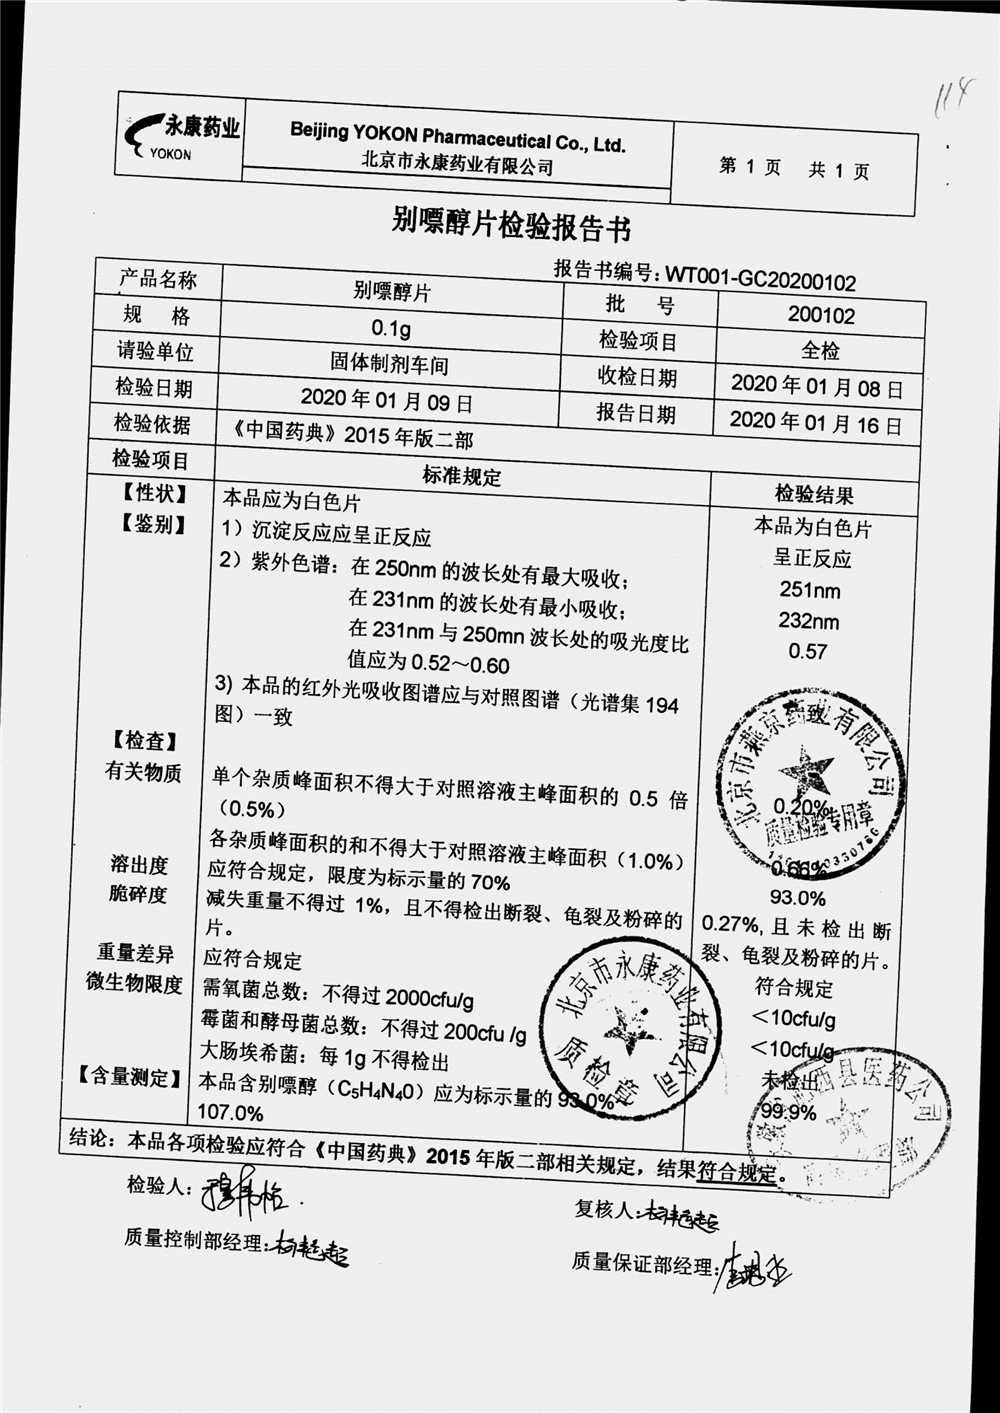 114
永康药业
YOKON
Beijing YOKON Pharmaceutical Co., Ltd.
北京市永康药业有限公司
第 1 页 共 1 页
别嘌醇片检验报告书
报告书编号: WT001-GC20200102
产品名称 别嘌醇片 批 号 200102
规 格 0.1g 检验项目 全检
请验单位 固体制剂车间 收检日期 2020 年 01 月 08 日
检验日期 2020 年 01 月 09 日 报告日期 2020 年 01 月 16 日
检验依据 《中国药典》2015 年版二部
检验项目 标准规定 检验结果
【性状】 本品应为白色片 本品为白色片
【鉴别】 1）沉淀反应应呈正反应 呈正反应
2）紫外色谱：在 250nm 的波长处有最大吸收； 251nm
在 231nm 的波长处有最小吸收； 232nm
在 231nm 与 250mn 波长处的吸光度比 0.57
值应为 0.52～0.60
3) 本品的红外光吸收图谱应与对照图谱（光谱集 194
图）一致
【检查】
有关物质 单个杂质峰面积不得大于对照溶液主峰面积的 0.5 倍 0.20%
（0.5%）
各杂质峰面积的和不得大于对照溶液主峰面积（1.0%） 0.66%
溶出度 应符合规定，限度为标示量的 70% 93.0%
脆碎度 减失重量不得过 1%，且不得检出断裂、龟裂及粉碎的 0.27%, 且未检出断
片。 裂、龟裂及粉碎的片。
重量差异 应符合规定 符合规定
微生物限度 需氧菌总数：不得过 2000cfu/g ＜10cfu/g
霉菌和酵母菌总数：不得过 200cfu /g ＜10cfu/g
大肠埃希菌：每 1g 不得检出 未检出
【含量测定】 本品含别嘌醇（C₅H₄N₄0）应为标示量的 93.0%~ 99.9%
107.0%
结论：本品各项检验应符合《中国药典》2015 年版二部相关规定，结果符合规定。
检验人: 复核人:
质量控制部经理: 质量保证部经理:
北京市燕京药业有限公司
质量检验专用章
北京市永康药业有限公司
质检章
西县医药公司